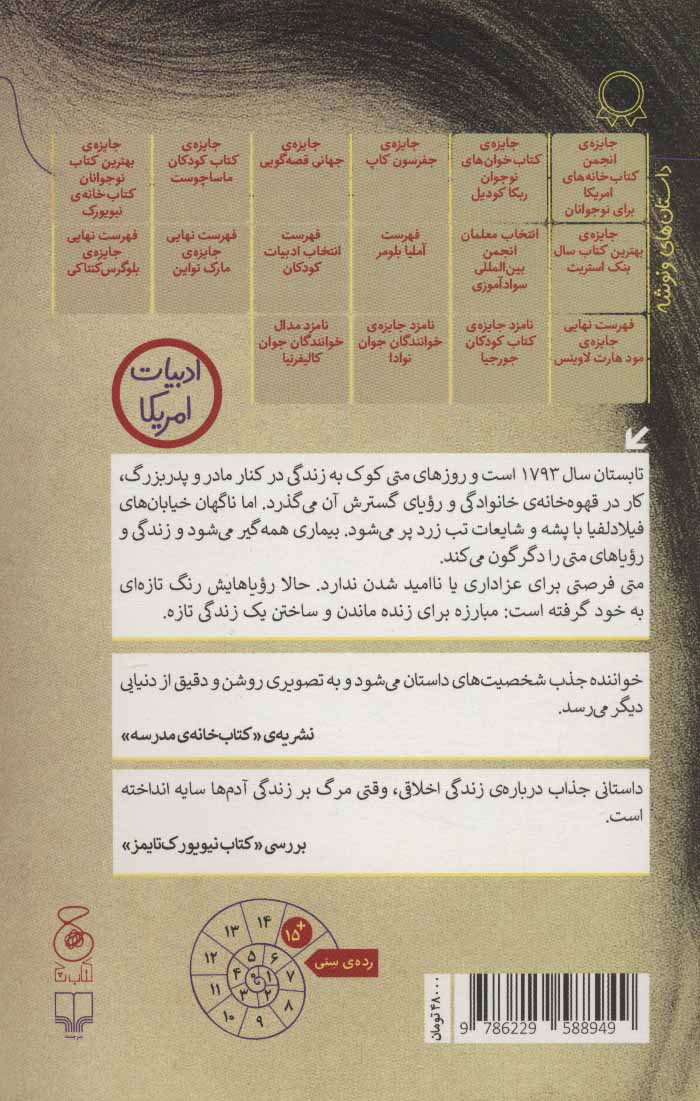 داستان‌های ونوشه
جایزه‌ی
انجمن
کتاب‌خانه‌های
امریکا
برای نوجوانان
جایزه‌ی
کتاب‌خوان‌های
نوجوان
ربکا کودیل
جایزه‌ی
جفرسون کاپ
جایزه‌ی
جهانی قصه‌گویی
جایزه‌ی
کتاب کودکان
ماساچوست
جایزه‌ی
بهترین کتاب
نوجوانان
کتاب‌خانه‌ی
نیویورک
جایزه‌ی
بهترین کتاب سال
بنک استریت
انتخاب معلمان
انجمن
بین‌المللی
سوادآموزی
فهرست
آملیا بلومر
فهرست
انتخاب ادبیات
کودکان
فهرست نهایی
جایزه‌ی
مارک تواین
فهرست نهایی
جایزه‌ی
بلوگرس‌کنتاکی
فهرست نهایی
جایزه‌ی
مود هارت لاوینس
نامزد جایزه‌ی
کتاب کودکان
جورجیا
نامزد جایزه‌ی
خوانندگان جوان
نوادا
نامزد مدال
خوانندگان جوان
کالیفرنیا
ادبیات
امریکا
تابستان سال ۱۷۹۳ است و روزهای متی کوک به زندگی در کنار مادر و پدربزرگ،
کار در قهوه‌خانه‌ی خانوادگی و رؤیای گسترش آن می‌گذرد. اما ناگهان خیابان‌های
فیلادلفیا با پشه و شایعات تب زرد پر می‌شود. بیماری همه‌گیر می‌شود و زندگی و
رؤیاهای متی را دگرگون می‌کند.
متی فرصتی برای عزاداری یا ناامید شدن ندارد. حالا رؤیاهایش رنگ تازه‌ای
به خود گرفته است: مبارزه برای زنده ماندن و ساختن یک زندگی تازه.
خواننده جذب شخصیت‌های داستان می‌شود و به تصویری روشن و دقیق از دنیایی
دیگر می‌رسد.
نشریه‌ی «کتاب‌خانه‌ی مدرسه»
داستانی جذاب درباره‌ی زندگی اخلاقی، وقتی مرگ بر زندگی آدم‌ها سایه انداخته
است.
بررسی «کتاب نیویورک‌تایمز»
رده‌ی سِنی
۱
۲
۳
۴
۵
۶
۷
۸
۹
۱۰
۱۱
۱۲
۱۳
۱۴
+۱۵
کتاب چ
چشمه
۴۸۰۰۰ تومان
9 786229 588949